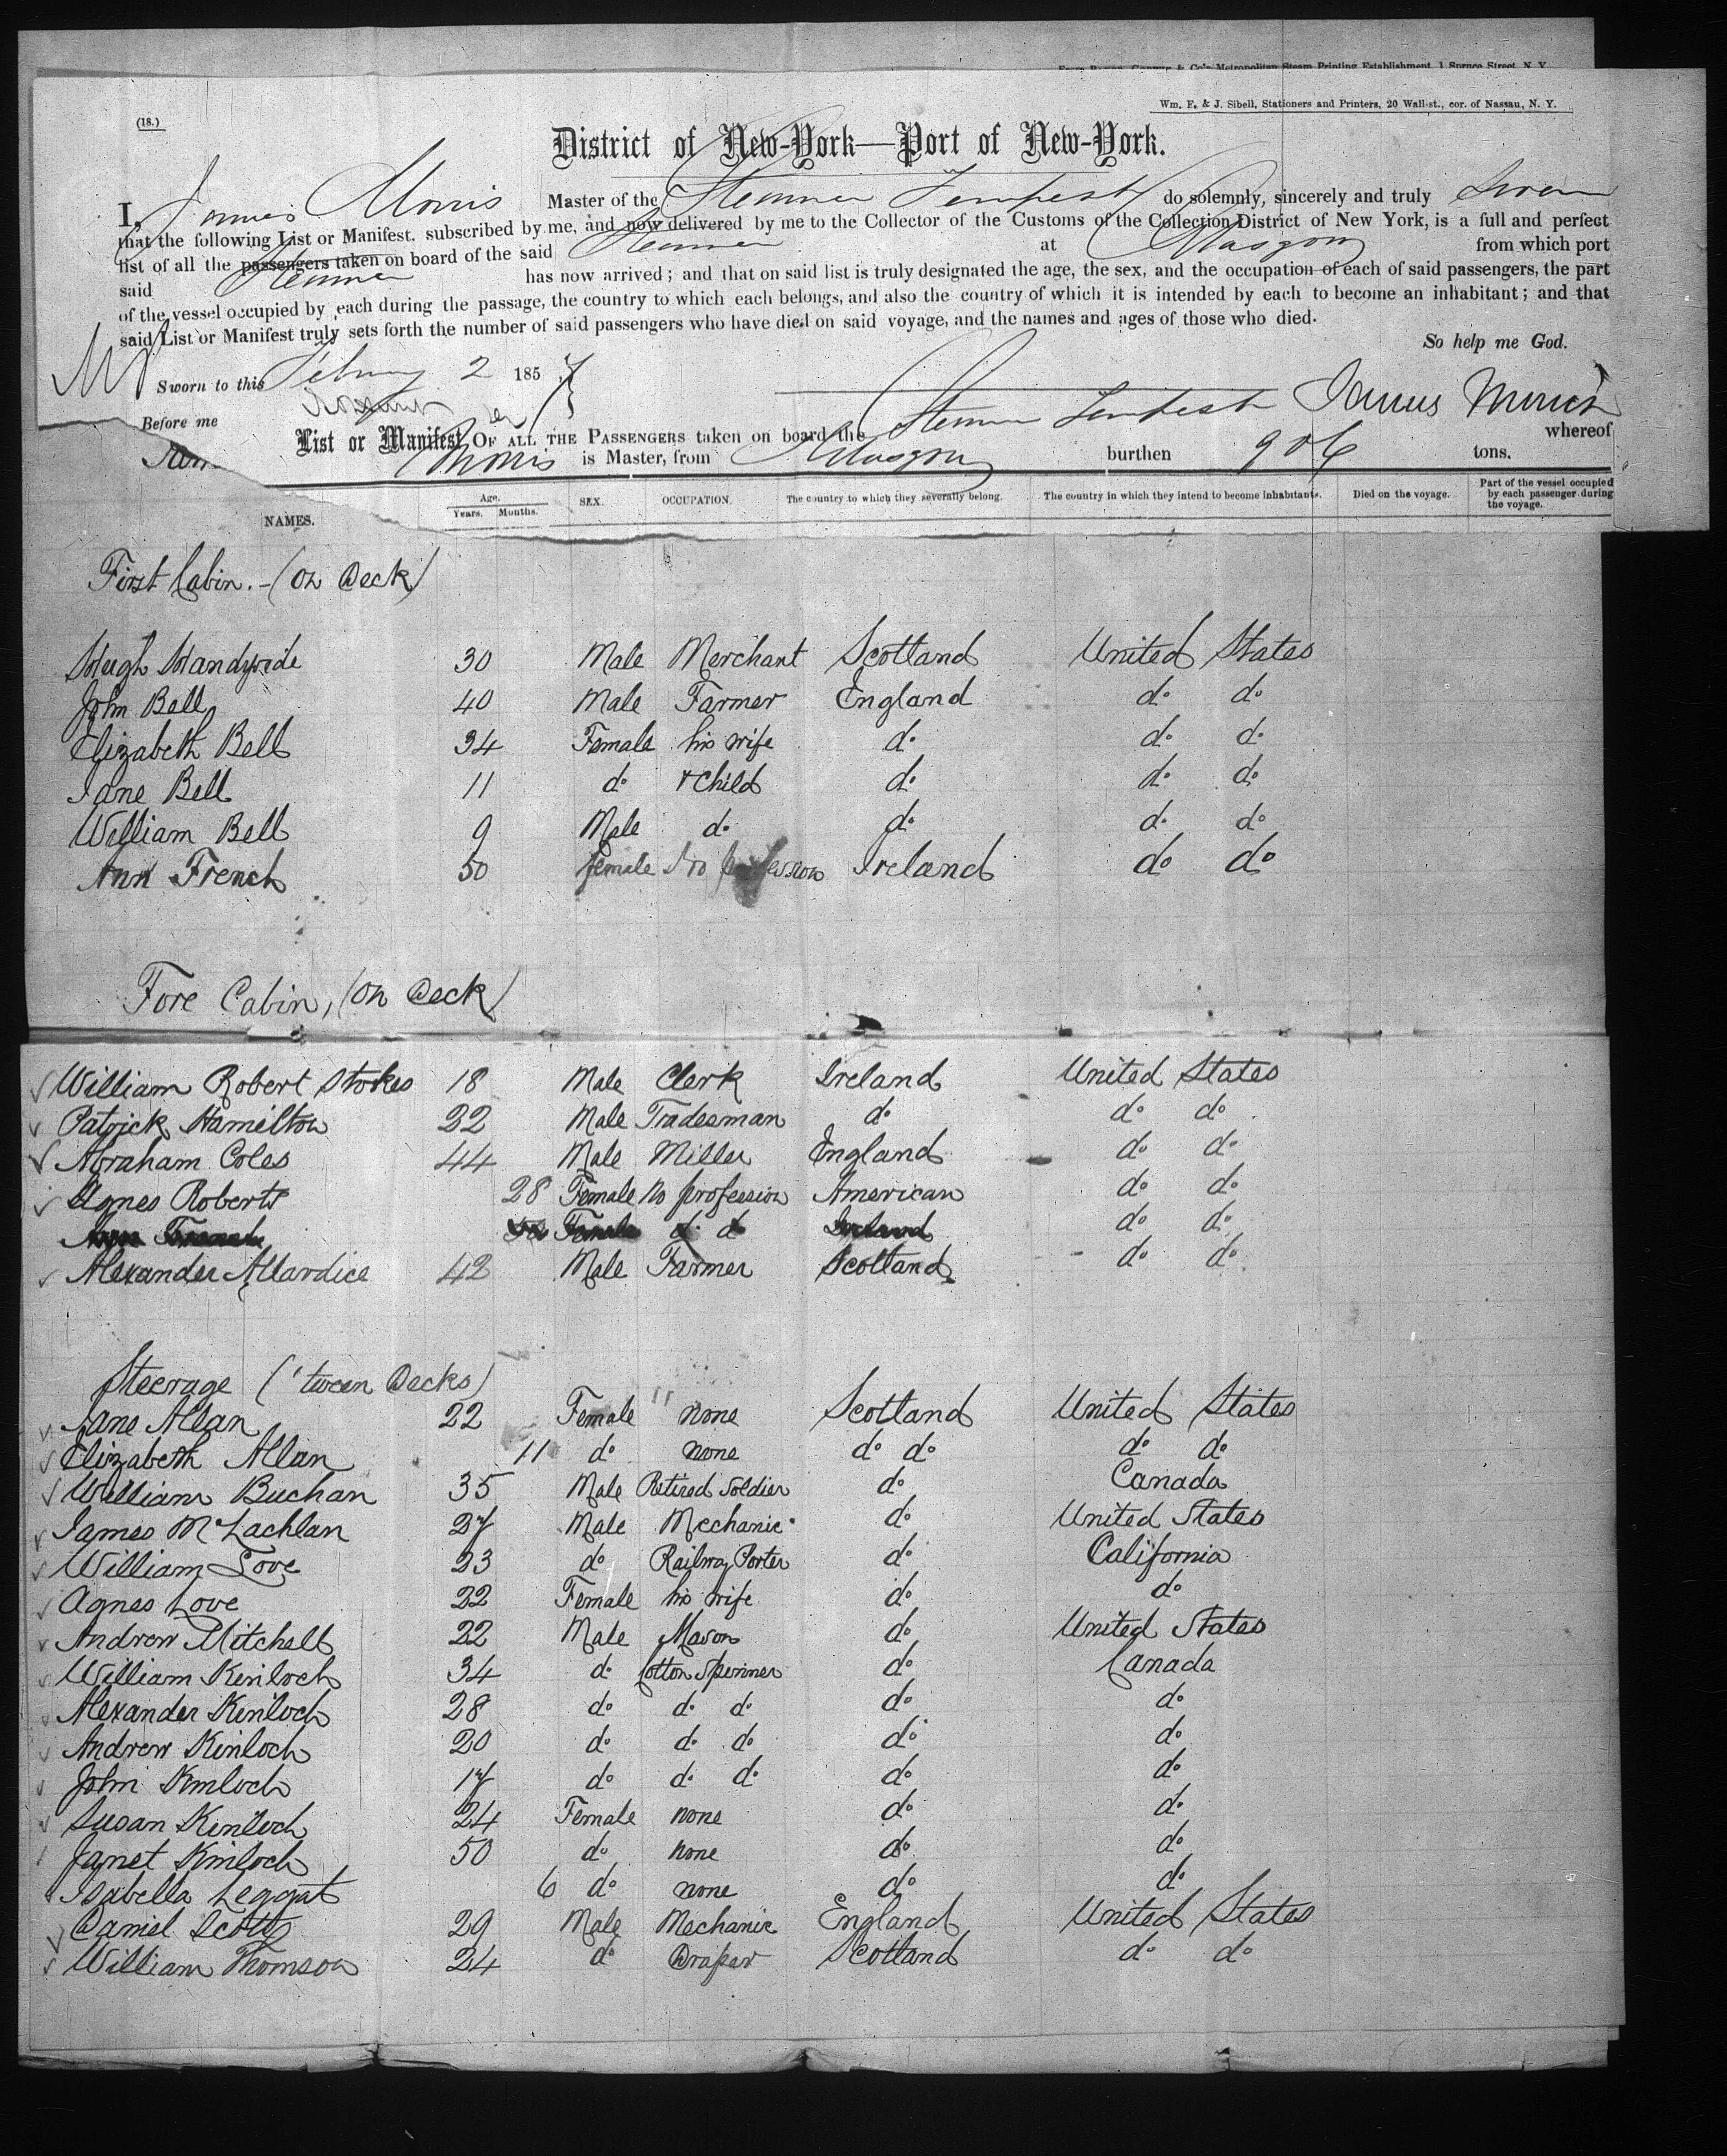 Wm. F. & J. Sibell, Stationers and Printers, 20 Wall-st., cor. of Nassau, N. Y.
(18.)
District of New-York—Port of New-York.
I, James Morris Master of the Steamer Tempest do solemnly, sincerely and truly Swear
that the following List or Manifest, subscribed by me, and now delivered by me to the Collector of the Customs of the Collection District of New York, is a full and perfect
list of all the passengers taken on board of the said Steamer at Glasgow from which port
said Steamer has now arrived; and that on said list is truly designated the age, the sex, and the occupation of each of said passengers, the part
of the vessel occupied by each during the passage, the country to which each belongs, and also the country of which it is intended by each to become an inhabitant; and that
said List or Manifest truly sets forth the number of said passengers who have died on said voyage, and the names and ages of those who died.
So help me God.
Sworn to this February 2 1857
James Morris
Before me
List or Manifest OF ALL THE PASSENGERS taken on board the Steamer Tempest whereof
Morris is Master, from Glasgow burthen 906 tons.
NAMES. Age. Years. Months. SEX. OCCUPATION. The country to which they severally belong. The country in which they intend to become inhabitants. Died on the voyage. Part of the vessel occupied by each passenger during the voyage.
First Cabin. - (On Deck)
Hugh 30 Male Merchant Scotland United States
John Bell 40 Male Farmer England do do
Elizabeth Bell 34 Female his wife do do do
Jane Bell 11 do + Child do do do
William Bell 9 Male do do do do
Ann French 50 female No profession Ireland do do
Fore Cabin, (On Deck)
William Robert Stokes 18 Male Clerk Ireland United States
Patrick Hamilton 22 Male Tradesman do do do
Abraham Coles 44 Male Miller England do do
Agnes Roberts 28 Female No profession American do do
Female do do Ireland do do
Alexander Allardice 42 Male Farmer Scotland do do
Steerage ('tween Decks)
Jane Allan 22 Female none Scotland United States
Elizabeth Allan 11 do none do do do do
William Buchan 35 Male Retired Soldier do Canada
James McLachlan 27 Male Mechanic do United States
William Love 23 do Railway Porter do California
Agnes Love 22 Female his wife do do
Andrew Mitchell 22 Male Mason do United States
William Kinloch 34 do Cotton Spinner do Canada
Alexander Kinloch 28 do do do do do
Andrew Kinloch 20 do do do do do
John Kinloch 17 do do do do do
Susan Kinloch 24 Female none do do
Janet Kinloch 50 do none do do
Isabella Leggat 6 do none do do
Daniel Scott 29 Male Mechanic England United States
William Thomson 24 do Draper Scotland do do